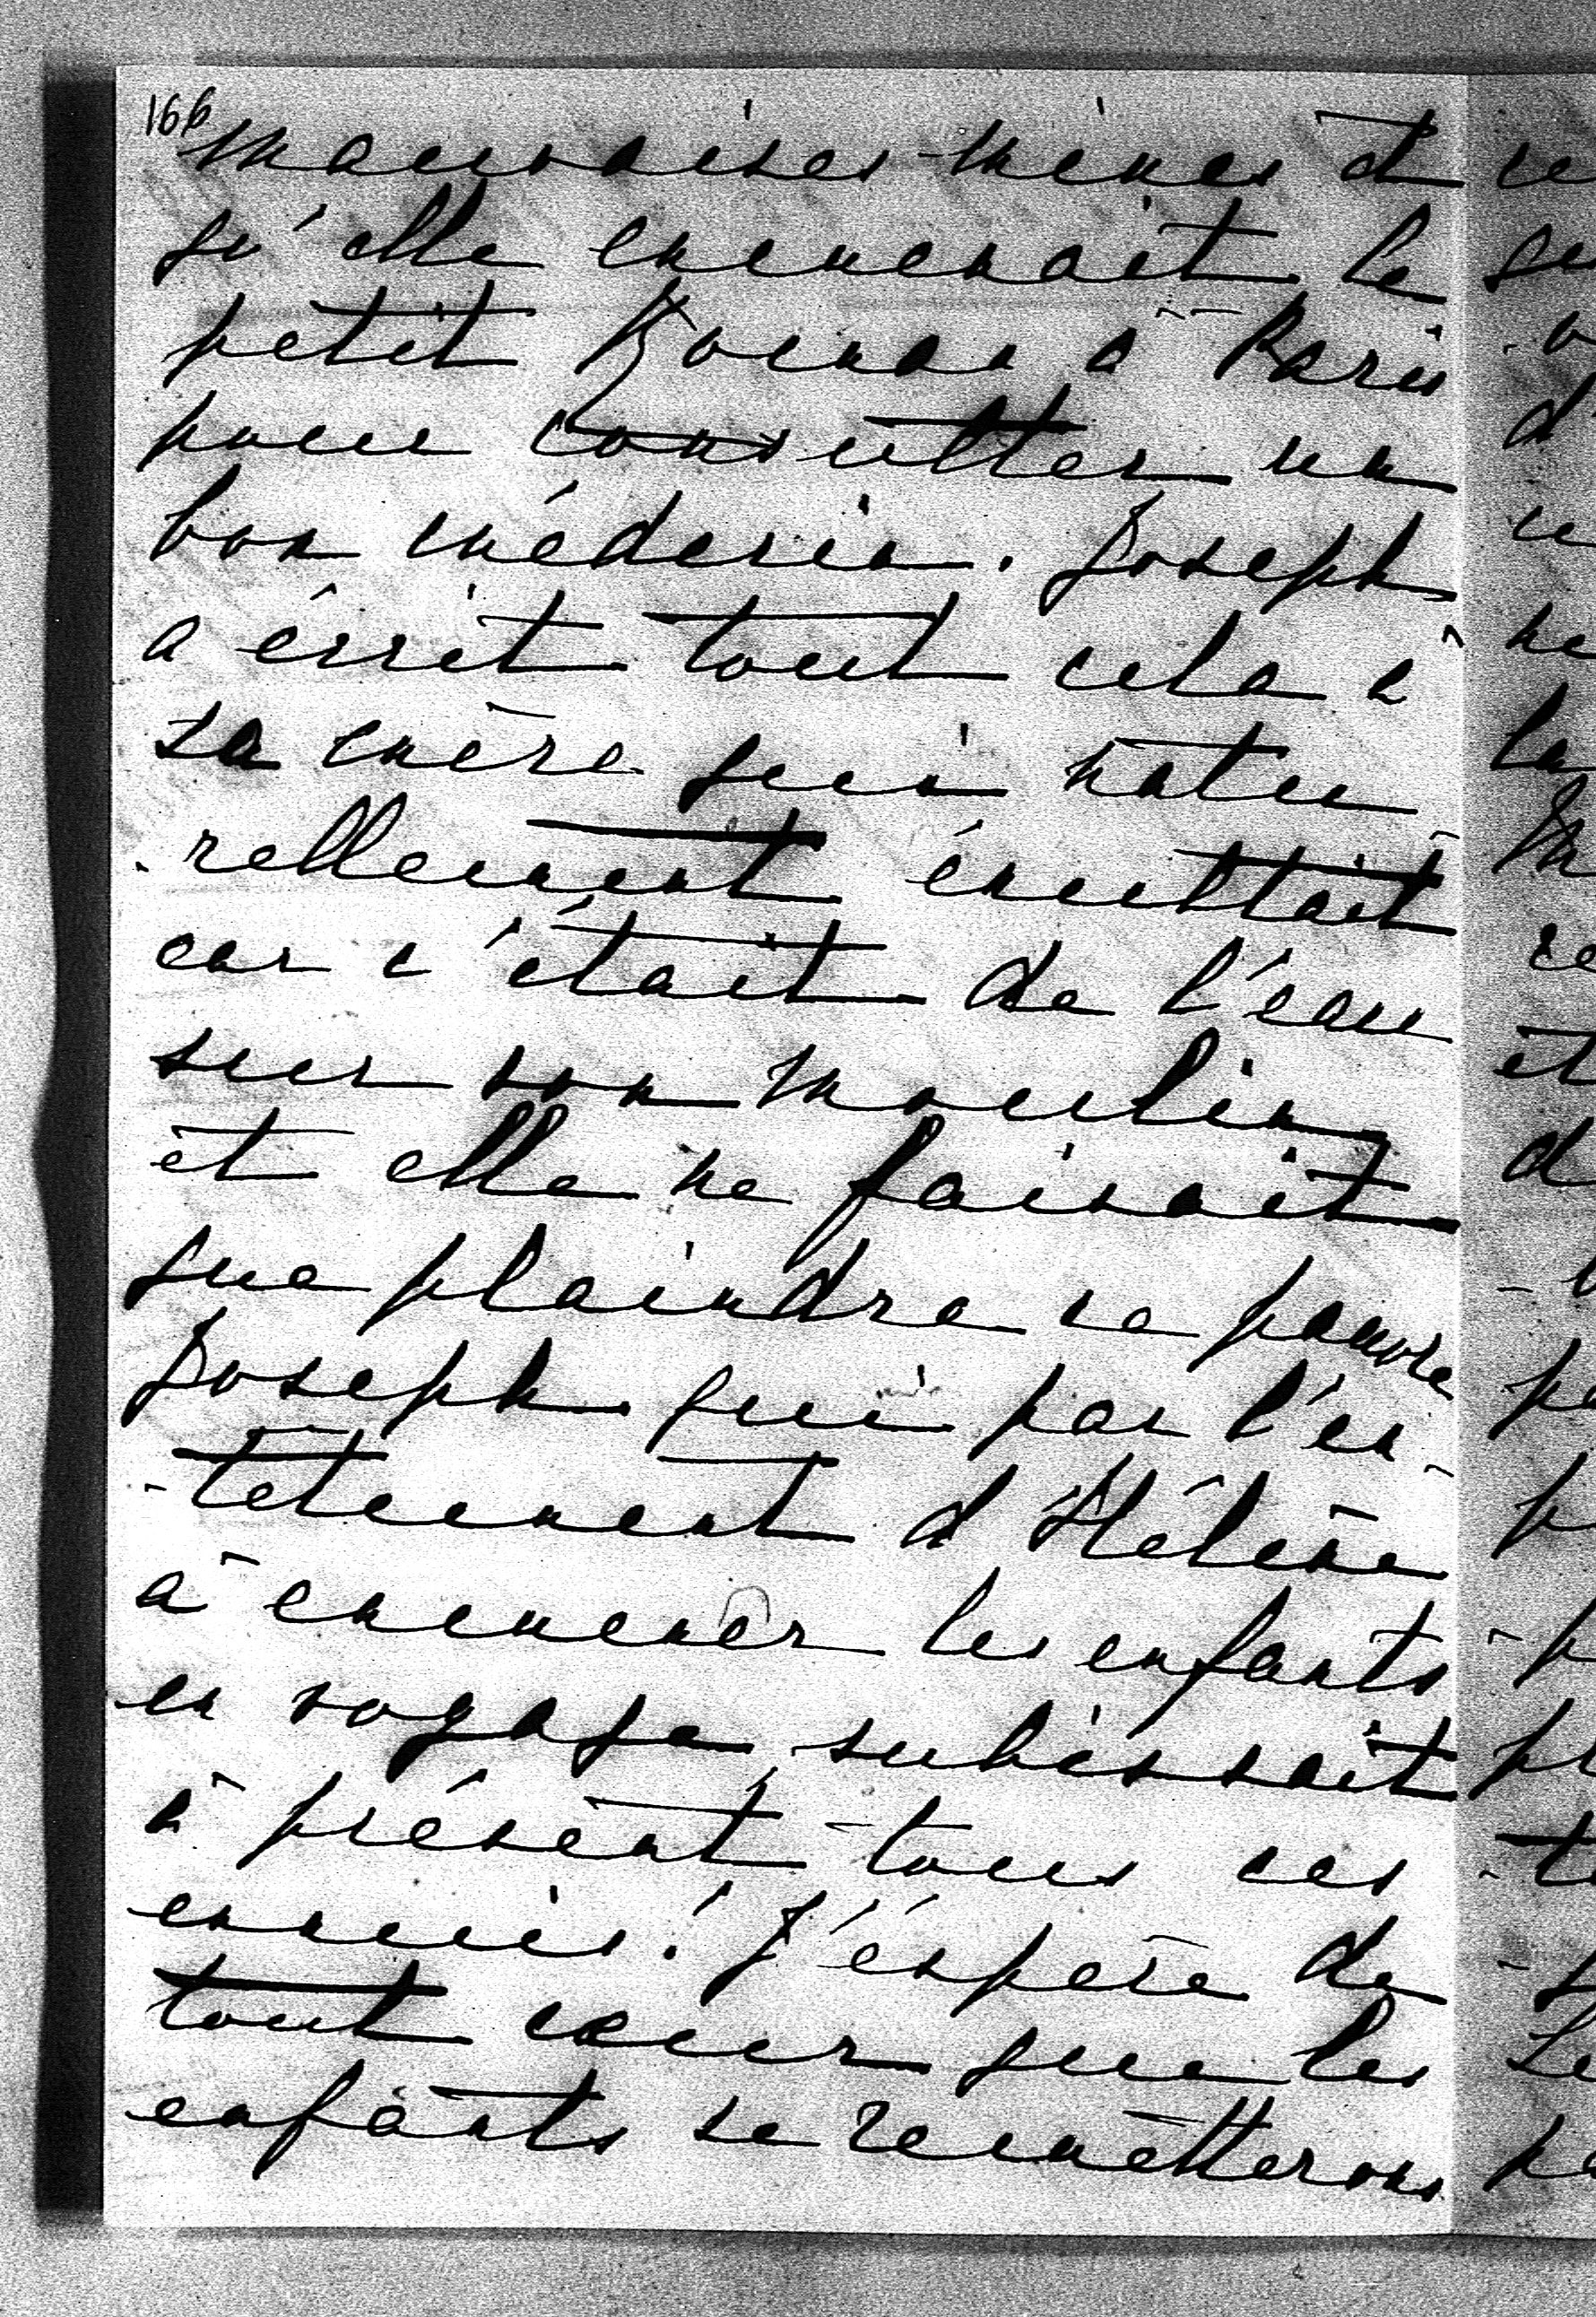 166
mauvaises mines et
qu'elle emmenait le
petit Roman à Paris
pour consulter un
bon médecin. Joseph
a écrit tout cela à
sa mère qui natu
-rellement éxultait
car c'était de l'eau
sur son moulin
et elle ne faisait
que plaindre ce pauvre
Joseph qui par l'en-
-têtement d'Hélène
à emmener les enfants
en voyage subissait
à présent tous ces
ennuis! J'éspère de
tout cœur que les
enfants se remetterons